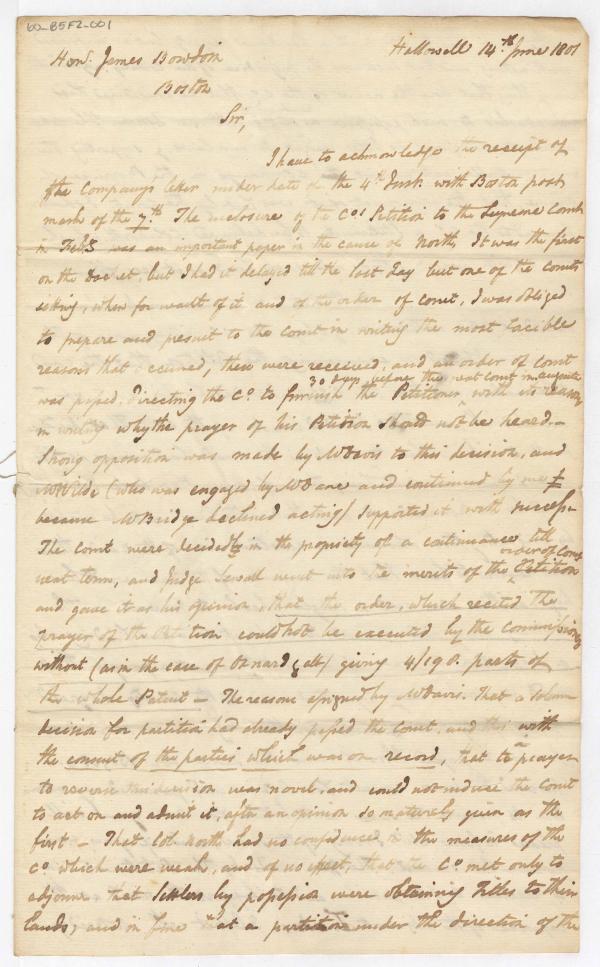 60-B5F2-001
Hallowell 14th June 1801
Honl. James Bowdoin
Boston
Sir,
I have to acknowledge the receipt of
the Company's letter under date of the 4th Inst. with Boston post
mark of the 7th. The enclosure of the Co's Petition to the Supreme Court
in was an important paper in the cause of North, It was the first
on the Docket, but I had it delayed till the last day but one of the Courts
sitting, when for want of it and of the order of court, I was obliged
to prepare and present to the Court in writing the most
reasons that occured, these were received, and an order of Court
30 days before the next Court in
was passed, directing the Co. to furnish the Petitioner, with its reasons
in writing why the prayer of his Petition should not be heard. —
Strong opposition was made by Mr Davis to this decision, and
Mr Wilde (who was engaged by Mr Dane and continued by me
because Mr Bridge declined acting) supported it with success.
The court were decidedly in the propriety of a continuance till
order of Court
next term, and Judge Sewall went into the merits of the ^ Petition
and gave it as his opinion, that the order, which recited the
prayer of the Petition could not be executed by the Commissioners
without (as in the case of & als) giving 4/190. parts of
the whole Patent — The reasons assigned by Mr Davis. That a solemn
decision for partition had already passed the Court, and this with
the consent of the parties which was on record, that to a prayer
to reverse this decision was novel, and could not induce the Court
to act on and admit it, after an opinion so maturely given as the
first — That Col. North had no confidence in the measures of the
Co. which were weak, and of no effect, that the Co. met only to
adjourn that Settlers by possession were obtaining Titles to their
lands, and in fine that a partition under the direction of the